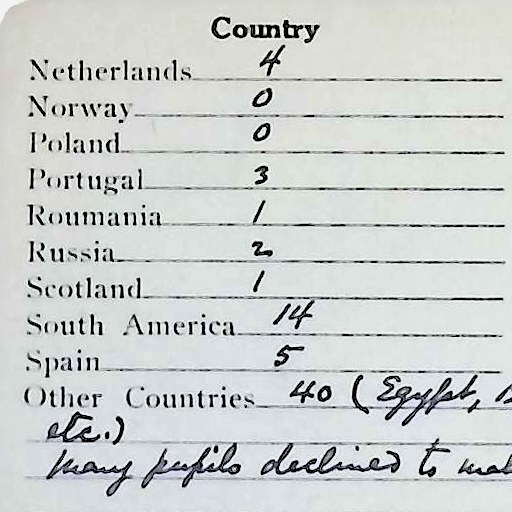 Country
Netherlands 4
Norway 0
Poland 0
Portugal 3
Roumania 1
Russia 2
Scotland 1
South America 14
Spain 5
Other Countries 40 (Egypt,
etc.)
Many pupils declined to